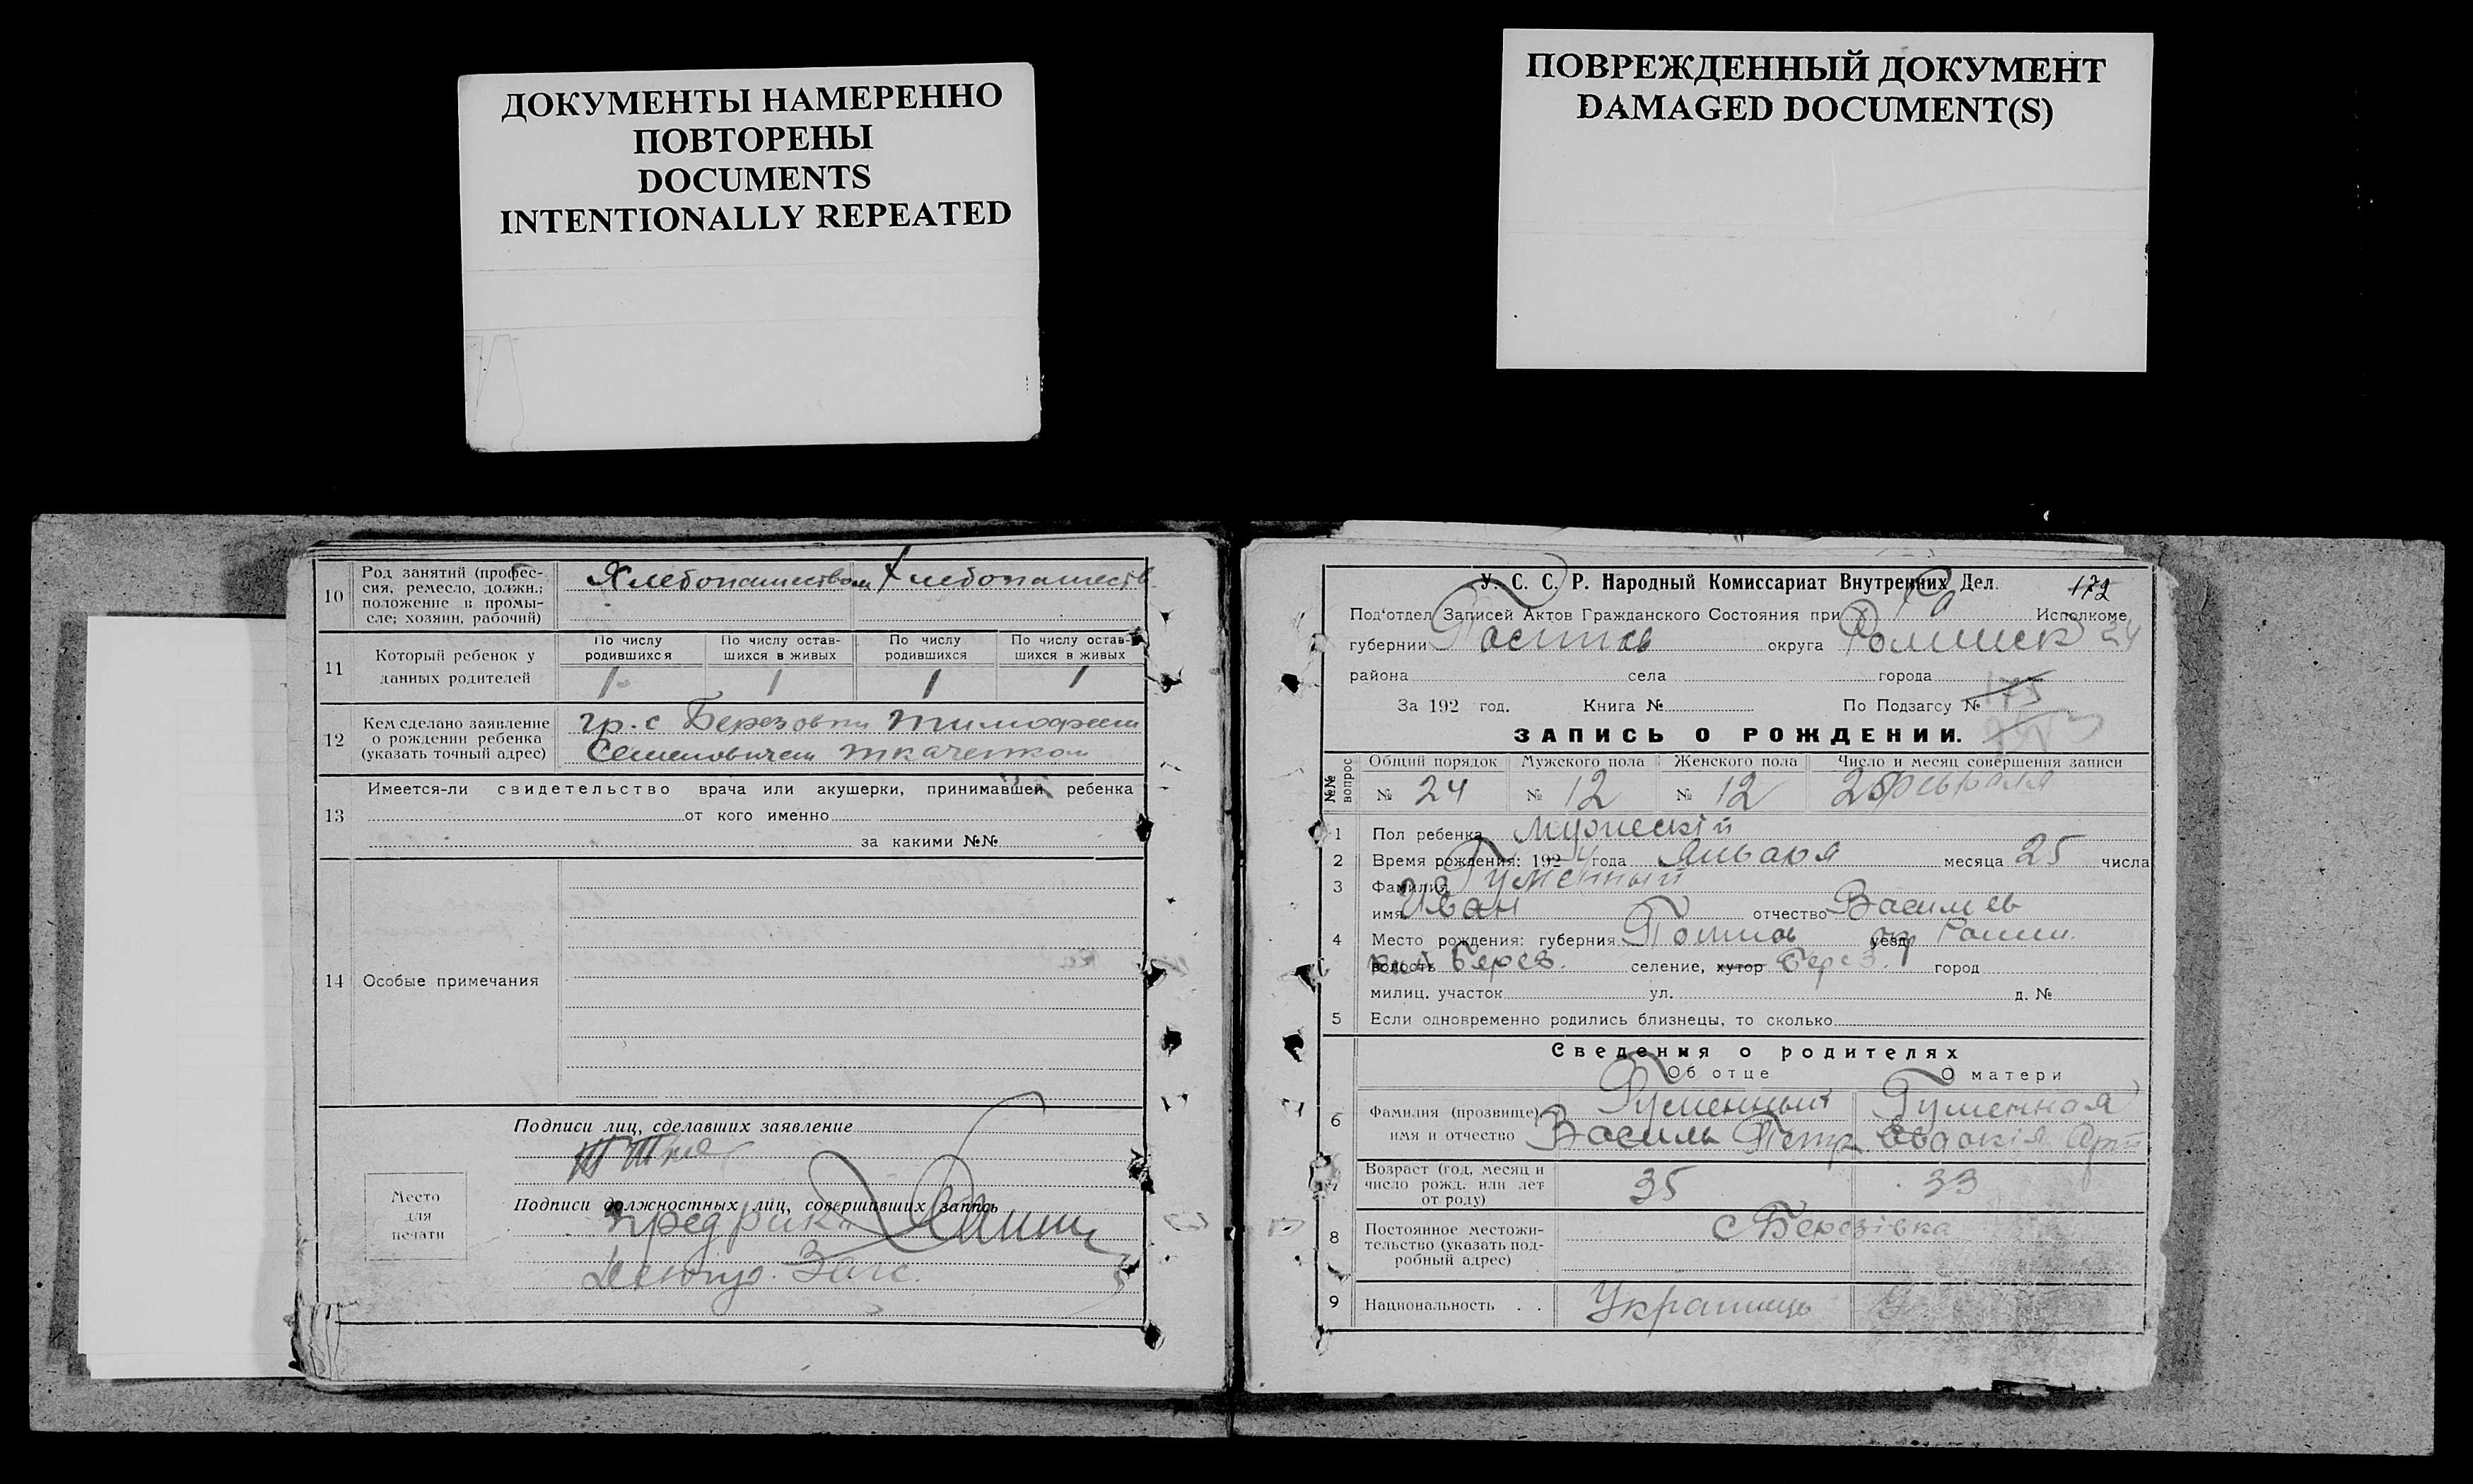 ДОКУМЕНТЫ НАМЕРЕННО
ПОВТОРЕНЫ
DOCUMENTS
INTENTIONALLY REPEATED
ПОВРЕЖДЕННЫЙ ДОКУМЕНТ
DAMAGED DOCUMENT(S)
10 Род занятий (профес-
сия, ремесло, должн.; Хлебопашеством Хлебопашеств
положение в промы-
сле; хозяин, рабочий)
По числу По числу остав- По числу По числу остав-
родившихся шихся в живых родившихся шихся в живых
11 Который ребенок у
данных родителей 1 1 1 1
12 Кем сделано заявление гр. с Березовки Тимофеем
о рождении ребенка
(указать точный адрес) Семеновичем Ткаченком
Имеется-ли свидетельство врача или акушерки, принимавшей ребенка
13 от кого именно
за какими №№
14 Особые примечания
Подписи лиц, сделавших заявление
Место
для
печати
Подписи должностных лиц, совершивших запись
Предрик
Загс.
У. С. С. Р. Народный Комиссариат Внутренних Дел. 172
Под'отдел Записей Актов Гражданского Состояния при Исполкоме
губернии округа 24
района села города
За 192 год. Книга № По Подзагсу № 175
ЗАПИСЬ О РОЖДЕНИИ.
№№ вопрос Общий порядок Мужского пола Женского пола Число и месяц совершения записи
№ 24 № 12 № 12 25 февраля
1 Пол ребенка Мужескій
2 Время рождения: 1924 года Января месяца 25 числа
3 Фамилия Гуменный
имя Иван отчество Васильев
4 Место рождения: губерния Полтав уезд окр Ромен.
волость Берез. селение, хутор Берез. город
милиц. участок ул. д. №
5 Если одновременно родились близнецы, то сколько
Сведения о родителях
Об отце О матери
6 Фамилия (прозвище), Гуменный Гуменная
имя и отчество Василь Петр Евдокія Арт
7 Возраст (год, месяц и
число рожд. или лет 35 33
от роду)
8 Постоянное местожи- с Березівка
тельство (указать под-
робный адрес)
9 Национальность . . Украинець У